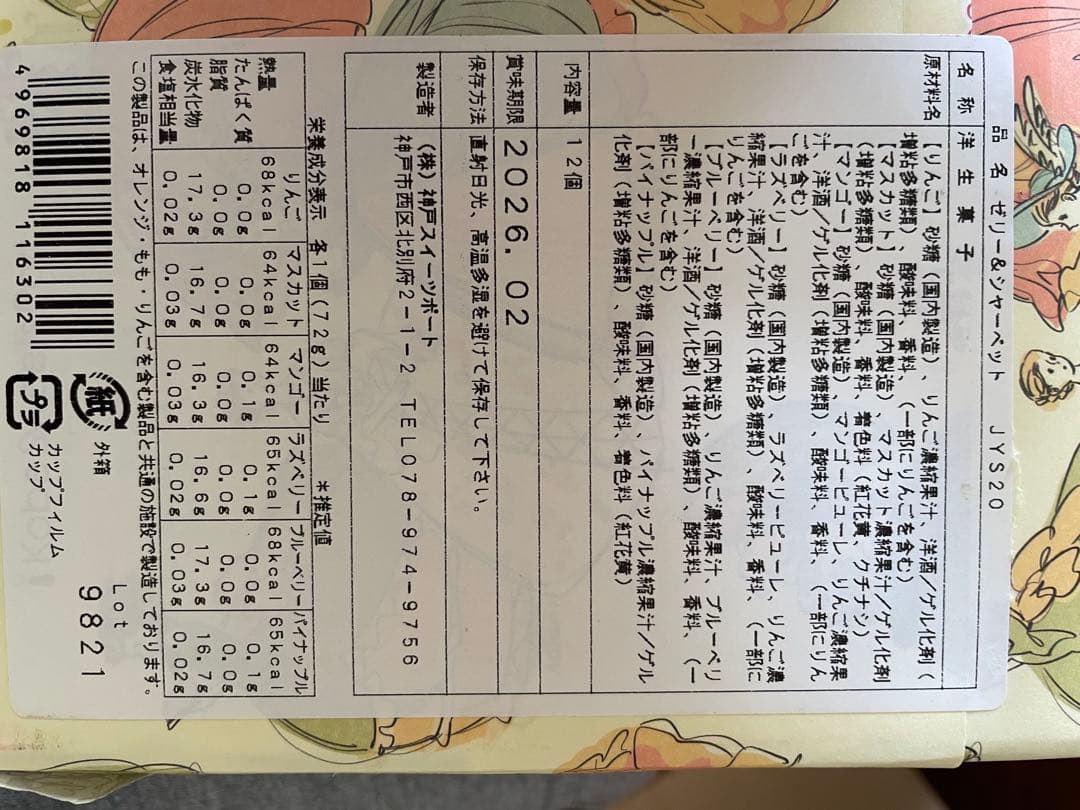 品 名 ゼリー&シャーベット JYS20
名 称 洋 生 菓 子
原材料名 【りんご】砂糖(国内製造)、りんご濃縮果汁、洋酒/ゲル化剤(
増粘多糖類)、酸味料、香料、(一部にりんごを含む)
【マスカット】砂糖(国内製造)、マスカット濃縮果汁/ゲル化剤
(増粘多糖類)、酸味料、香料、着色料(紅花黄、クチナシ)
【マンゴー】砂糖(国内製造)、マンゴーピューレ、りんご濃縮果
汁、洋酒/ゲル化剤(増粘多糖類)、酸味料、香料、(一部にりん
ごを含む)
【ラズベリー】砂糖(国内製造)、ラズベリーピューレ、りんご濃
縮果汁、洋酒/ゲル化剤(増粘多糖類)、酸味料、香料、(一部に
りんごを含む)
【ブルーベリー】砂糖(国内製造)、りんご濃縮果汁、ブルーベリ
ー濃縮果汁、洋酒/ゲル化剤(増粘多糖類)、酸味料、香料、(一
部にりんごを含む)
【パイナップル】砂糖(国内製造)、パイナップル濃縮果汁/ゲル
化剤(増粘多糖類)、酸味料、香料、着色料(紅花黄)
内容量 12個
賞味期限 2026.02
保存方法 直射日光、高温多湿を避けて保存して下さい。
製造者 (株)神戸スイーツポート
神戸市西区北別府2-1-2 TEL078-974-9756
栄養成分表示 各1個(72g)当たり *推定値
りんご マスカット マンゴー ラズベリー ブルーベリー パイナップル
熱量 68kcal 64kcal 64kcal 65kcal 68kcal 65kcal
たんぱく質 0.0g 0.0g 0.1g 0.1g 0.0g 0.1g
脂質 0.0g 0.0g 0.0g 0.0g 0.0g 0.0g
炭水化物 17.3g 16.7g 16.3g 16.6g 17.3g 16.7g
食塩相当量 0.02g 0.03g 0.03g 0.02g 0.03g 0.02g
この製品は、オレンジ・もも・りんごを含む製品と共通の施設で製造しております。
紙 外箱
プラ カップフィルム
カップ
Lot
9821
4969818116302